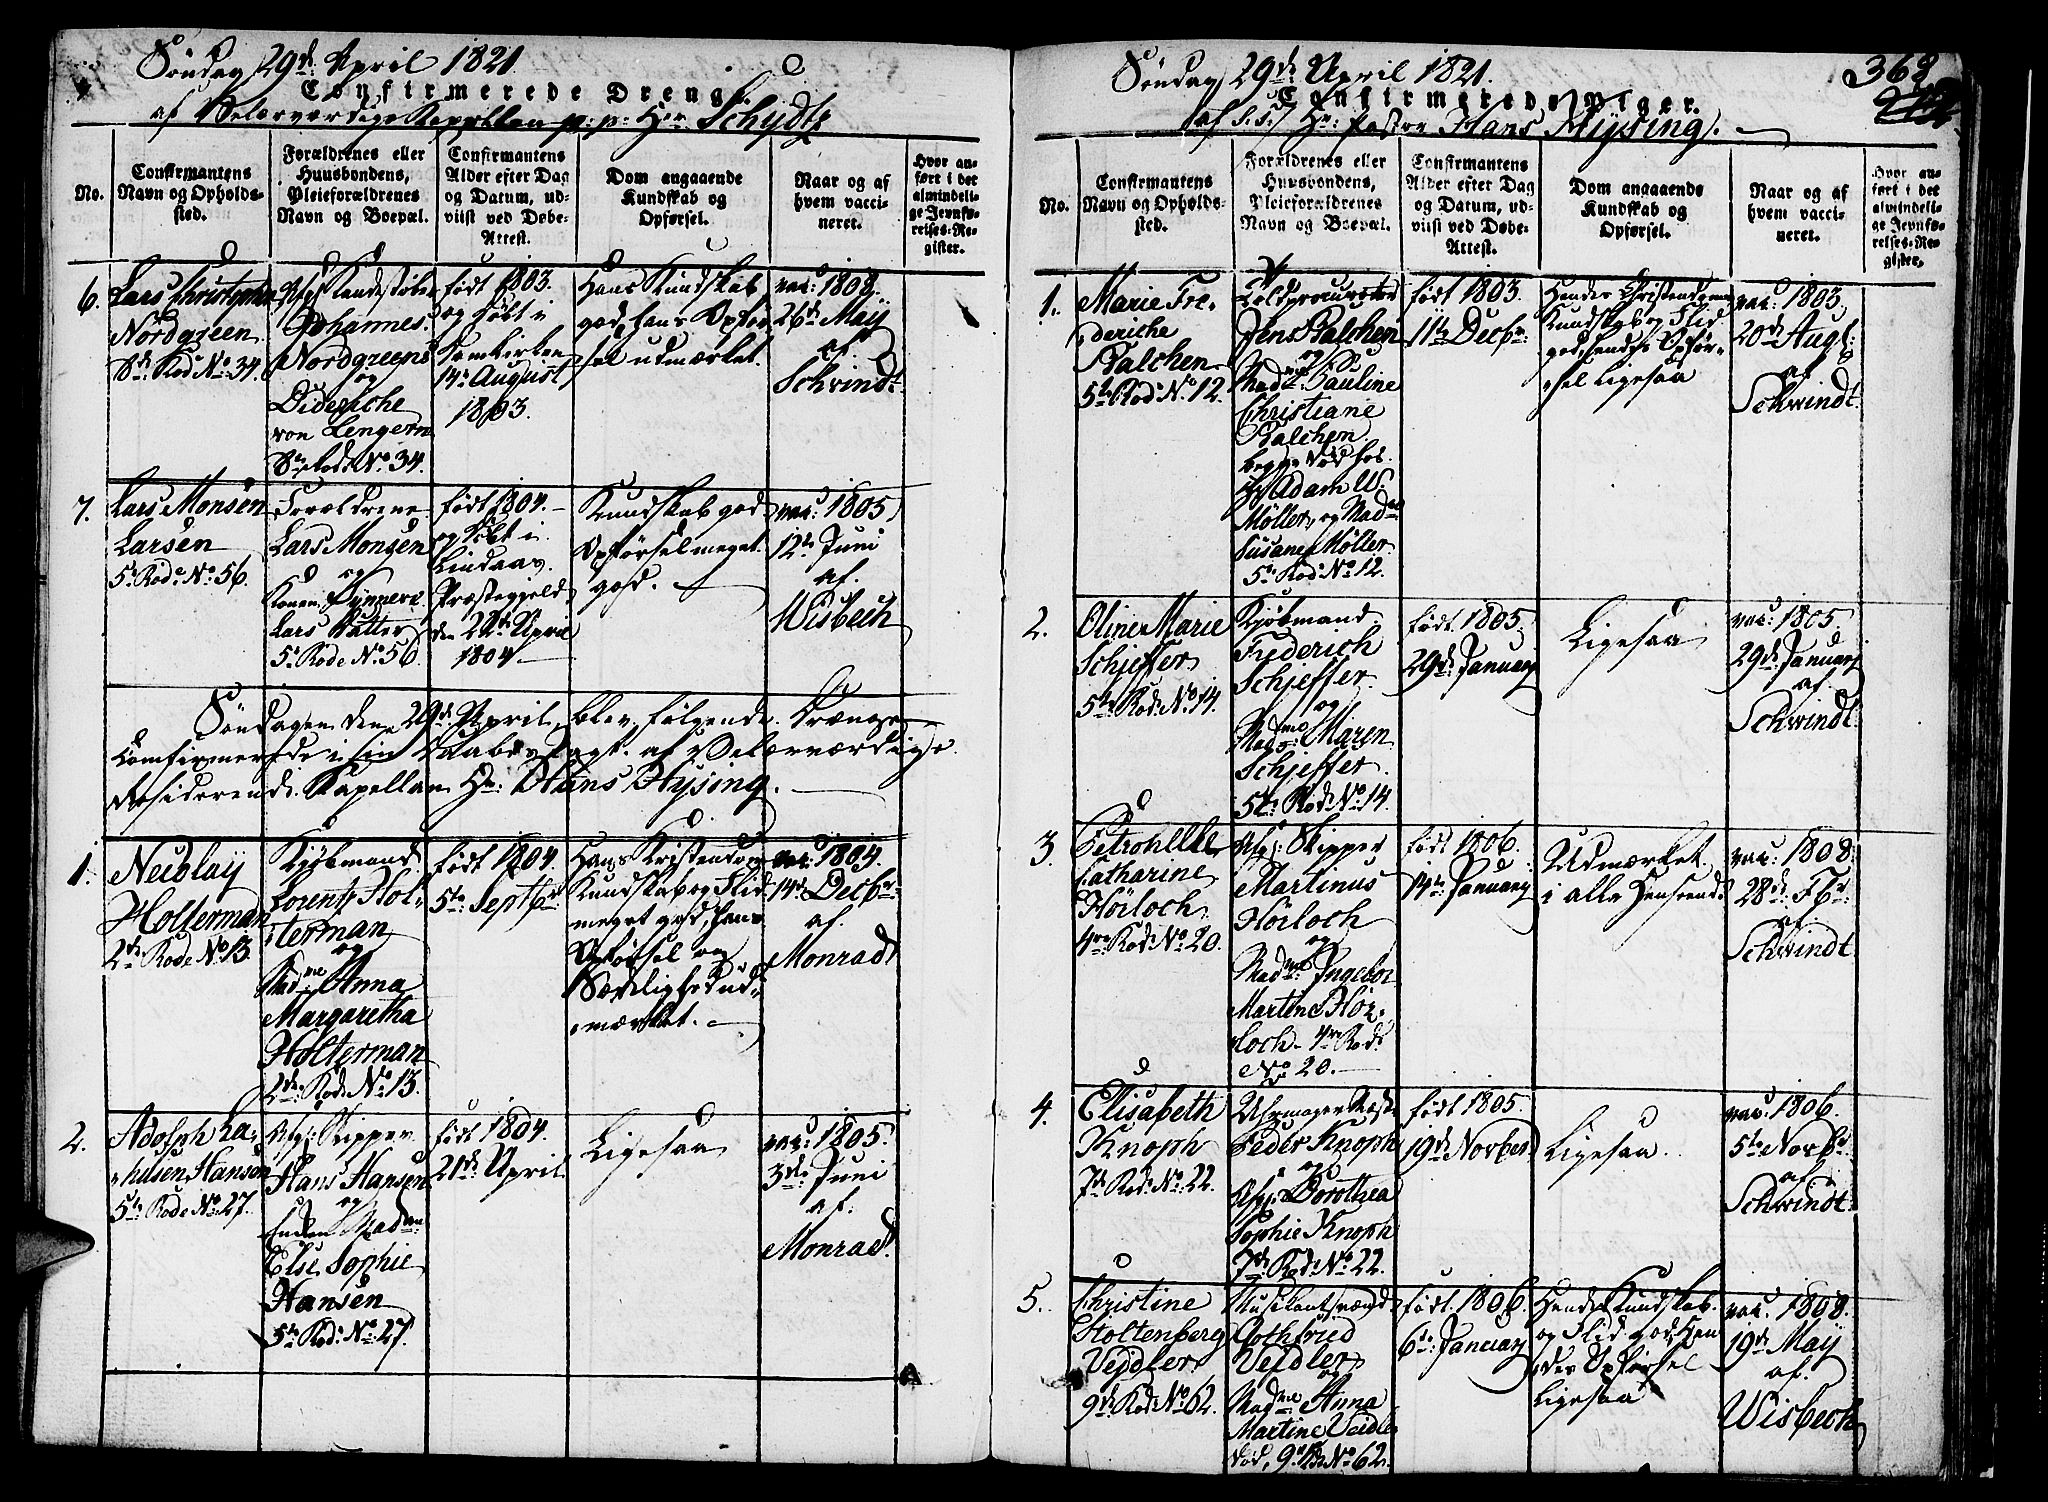 Søndag 29de April 1821
Confirmerede Drenge
af Velærværdige Kapellan p: p: Hr: Schydtz
No.
Confirmantens
Navn og Opholds-
sted.
Forældrenes eller
Huusbondens,
Pleieforældrenes
Navn og Boepæl.
Confirmantens
Alder efter Dag
og Datum, ud-
viist ved Døbe-
Attest.
Dom angaaende
Kundskab og
Opførsel.
Naar og af
hvem vacci-
neret.
Hvor an-
ført i det
almindeli-
ge Jevnfø-
relses-Re-
gister.
6.
Lars Christopher
Nordgreen
8de Rode No 34.
Afg: Kandestøber
Johannes
Nordgreens
og
Dideriche
von Lengern
8de Rode No 34.
født 1803.
og døbt i
Domkirken
14de August
1803.
Hans Kundskab
god, hans Opfør-
sel udmærket.
vac: 1808.
26de May
af
Schvindt
7.
Lars Monsen
Larsen
5te Rode No 56.
Forældrene
Lars Monsen
og
Konen Synneve
Lars Datter
5te Rode No 56.
født 1804.
og døbt i
Lindaas
Præstegjeld
den 22de April
1804
Kundskab god
Opførsel meget
god.
vac: 1805
12te Juni
af.
Wisbech
Søndagen den 29de April blev følgende Drænge
Confirmerede i sin Daabes Pagt af Velærværdige
Residerende Kapellan Hr: Hans Hysing.
1.
Nicolay
Holterman
2de Rode No 13.
Kjøbmand
Lorentz Hol-
terman
og
Madme Anna
Margaretha
Holterman
2de Rode No 13.
født 1804.
5te Septbr
Hans Kristendoms
Kundskab og Flid
meget god, hans
Opførsel og
Sædelighed ud-
mærket.
vac: 1804.
14de Decbr
af.
Monrad
2.
Adolph La-
Hansen
5te Rode No 27.
Afg: Skipper
Hans Hansen
og
Enken Madme
Else Sophie
Hansen
5te Rode No 27.
født 1804.
21de April
Ligesaa
vac: 1805.
3de Juni
af.
Monrad.
Søndag 29de April 1821.
368
Confirmerede Piger.
af S. S. Hr: Pastor Hans Hysing.
No.
Confirmantens
Navn og Opholds-
sted.
Forældrenes eller
Huusbondens,
Pleieforældrenes
Navn og Boepæl.
Confirmantens
Alder efter Dag
og Datum, ud-
viist ved Døbe-
Attest.
Dom angaaende
Kundskab og
Opførsel.
Naar og af
hvem vacci-
neret.
Hvor an-
ført i det
almindeli-
ge Jevnfø-
relses-Re-
gister.
1.
Marie Fre-
deriche
Balchen
5te Rode No 12.
Toldprocurator
Jens Balchen
og
Madme Pauline
Christiane
Balchen
begge død hos
Hr Adam W.
Møller, og Madme
Susane Møller
5te Rode No 12.
født 1803.
11te Decbr
Hendes Christendoms
Kundskab og Flid
god, hendes Opfør-
sel ligesaa
vac: 1803.
20de Augt:
af
Schwindt
2.
Oline Marie
Schjeffer
5te Rode No 14.
Kjøbmand
Frederich
Schjeffer
og
Madme Maren
Schjeffer
5te Rode No 14.
født 1805.
29de January
Ligesaa
vac: 1805.
29de January
af.
Schwindt
3.
Petronelle
Catharine
Høiloch
4re Rode No 20.
Afg: Skipper
Martinus
Høiloch
og
Madme Ingebor
Martine Høi-
loch 4re Rode
No 20.
født 1806.
14de January
Udmærket
i alle Henseende
vac: 1808.
28de Fbr
af
Schwindt
4.
Elisabeth
Knoph
7de Rode No 22.
Uhrmager
Peder Knoph
og
Afg: Dorothea
Sophie Knoph
7de Rode No 22.
født 1805.
19de Norber
Ligesaa
vac: 1806.
5te Norbr
af
Schwindt
5.
Christine
Stoltenberg
Veidler
9de Rode No 62.
Musikantsvend
Gothfried
Veidler
og
Madme Anna
Martine Veidler
død, 9de Rode No 62.
født 1806.
6te January
Hendes Kundskab
og Flid god, Hen-
des Opførsel
Ligesaa
vac: 1808.
19de May
af.
Wisbech